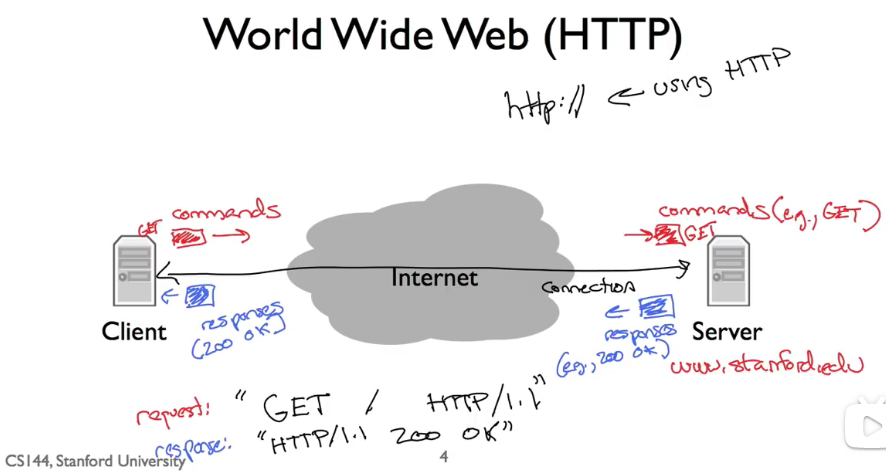 World Wide Web (HTTP)
http:// ← using HTTP
commands
GET
commands (e.g., GET)
GET
Internet
connection
Client
responses
(200 OK)
Server
responses
(e.g., 200 OK)
www.stanford.edu
request: "GET / HTTP/1.1"
response: "HTTP/1.1 200 OK"
CS144, Stanford University
4